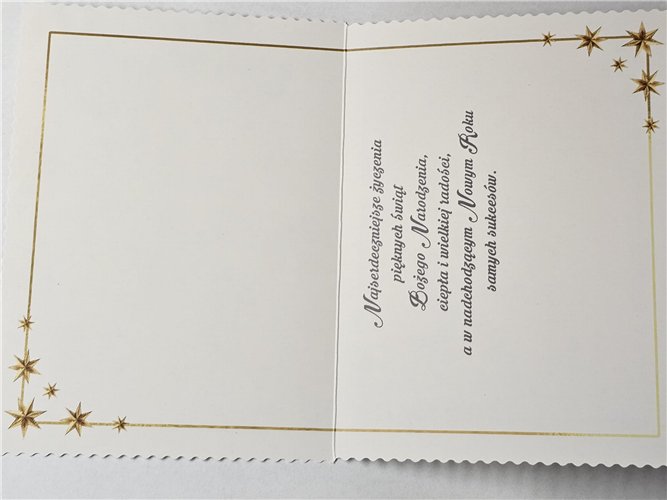 Najserdeczniejsze życzenia
pięknych świąt
Bożego Narodzenia,
ciepła i wielkiej radości,
a w nadchodzącym Nowym Roku
samych sukcesów.